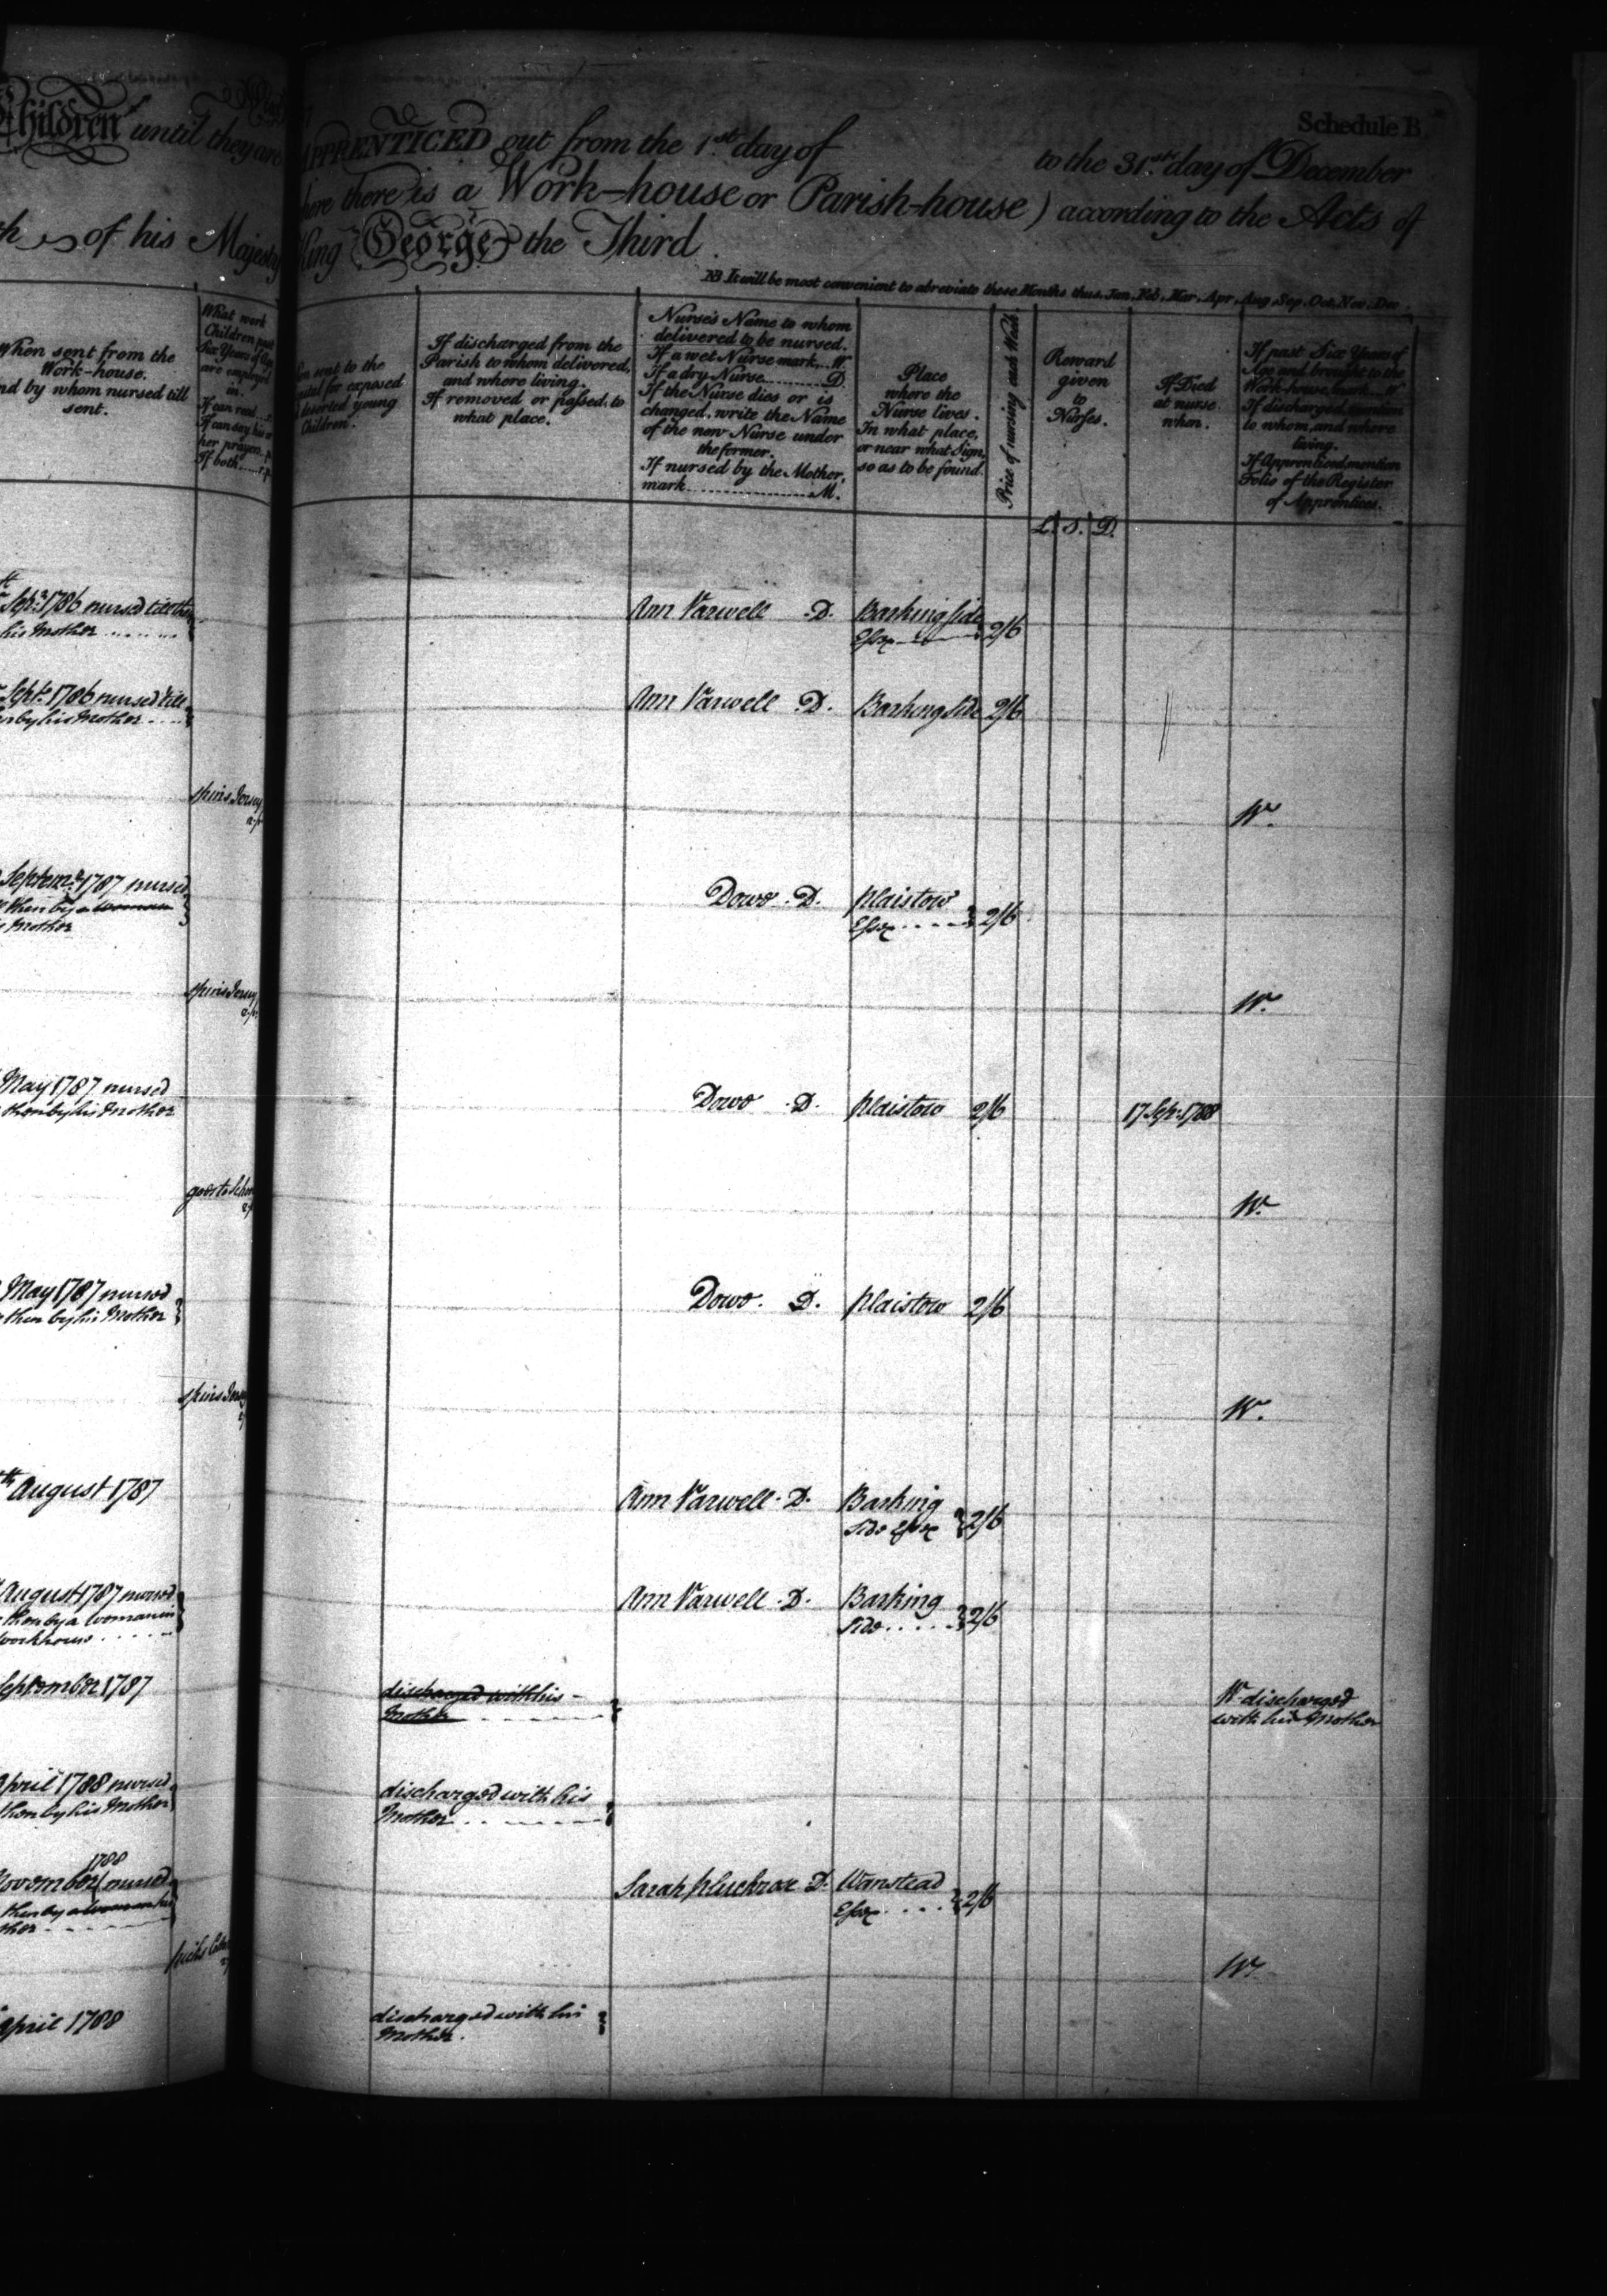 Schedule B.
Children until they are
APPRENTICED out from the 1st day of to the 31st day of December
there is a Work-house or Parish-house) according to the Acts of
of his Majesty
King George the Third.
NB It will be most convenient to abreviate these Months thus, Jan, Feb, Mar, Apr, Aug, Sep, Oct, Nov, Dec.
When sent from the
Work-house.
nd by whom nursed till
sent.
What work
Children past
Six Years of Age
are employed
in.
If can read...r.
If can say his or
her prayers. p.
If both......r.p.
sent to the
for exposed
deserted young
Children.
If discharged from the
Parish to whom delivered,
and where living.
If removed or passed, to
what place.
Nurse's Name to whom
delivered to be nursed.
If a wet Nurse mark...W
If a dry Nurse............D.
If the Nurse dies or is
changed, write the Name
of the new Nurse under
the former.
If nursed by the Mother,
mark....................M.
Place
where the
Nurse lives.
In what place,
or near what Sign,
so as to be found.
Price of nursing each Week.
Reward
given
to
Nurses.
If Died
at nurse
when.
If past Six Years of
Age and brought to the
Work-house, mark...W
If discharged, mention
to whom, and where
living.
If Apprenticed, mention
Folio of the Register
of Apprentices.
L. S. D.
Sepr. 1786 nursed till then
his Mother
Ann Varwell D. Barking side
Essex 2/6
Sept. 1786 nursed till
by his Mother
Ann Varwell D. Barking Side 2/6
spins Jersey
W.
Septemr. 1787 nursed
then by a woman
Mother
Dowo D. Plaistow
Essex 2/6
spins Jersey
W.
May 1787 nursed
then by his Mother
Dowo D. Plaistow 2/6 17 Sepr. 1788
goes to School
W.
May 1787 nursed
then by his Mother
Dowo. D. Plaistow 2/6
spins Jersey
W.
th August 1787
Ann Varwell D. Barking
Side Essex 2/6
August 1787 nursed
then by a woman in
workhouse
Ann Varwell D. Barking
Side 2/6
September 1787
discharged with his
Mother
W. discharged
with his Mother
April 1788 nursed
then by his Mother
discharged with his
Mother
1788
November nursed
then by a woman
Sarah D. Wanstead
Essex 2/6
W.
April 1788
discharged with his
Mother.